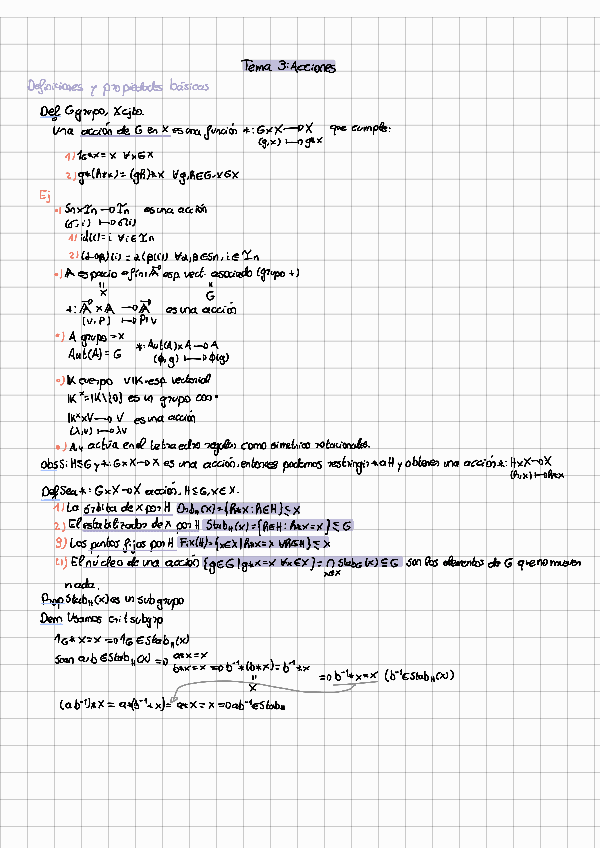 Tema 3: Acciones
Definiciones y propiedades básicas
Def G grupo, X cjto.
Una acción de G en X es una función *: G×X→X que cumple:
(g,x)↦g*x
1) 1G*x=x ∀x∈X
2) g*(h*x)=(gh)*x ∀g,h∈G, x∈X
Ej
•) Sn×In→In es una acción
(σ,i)↦σ(i)
1) id(i)=i ∀i∈In
2) (α∘β)(i)=α(β(i)) ∀α,β∈Sn, i∈In
•) A espacio afín, A⃗ esp. vect. asociado (grupo +)
= =
X G
*: A⃗×A→A⃗ es una acción
(v,P)↦P+v
•) A grupo=X *: Aut(A)×A→A
Aut(A)=G (ϕ,g)↦ϕ(g)
•) K cuerpo V K-esp. vectorial
K*=K\{0} es un grupo con •
K*×V→V es una acción
(λ,v)↦λv
•) A4 actúa en el tetraedro regular como simetrías rotacionales.
Obs Si H≤G y *: G×X→X es una acción, entonces podemos restringir * a H y obtener una acción *: H×X→X
(h,x)↦h*x
Def Sea *: G×X→X acción, H≤G, x∈X.
1) La órbita de x por H OrbH(x)={h*x: h∈H}⊆X
2) El estabilizador de x por H StabH(x)={h∈H: h*x=x}≤G
3) Los puntos fijos por H Fix(H)={x∈X | h*x=x ∀h∈H}⊆X
4) El núcleo de una acción {g∈G | g*x=x ∀x∈X}=∩StabG(x)≤G son los elementos de G que no mueven
x∈X
nada.
Prop StabH(x) es un subgrupo
Dem Usamos crit subgrp
1G*x=x⇒1G∈StabH(x)
Sean a,b∈StabH(x)⇒ a*x=x
b*x=x ⇒b⁻¹*(b*x)=b⁻¹*x
=
x
⇒b⁻¹*x=x (b⁻¹∈StabH(x))
(ab⁻¹)*x=a*(b⁻¹*x)=a*x=x⇒ab⁻¹∈StabH